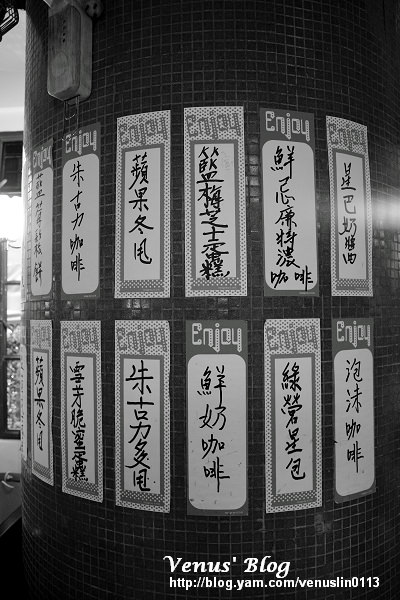 Enjoy
朱古力咖啡
Enjoy
蘋果冬甩
Enjoy
籃梅芝士蛋糕
Enjoy
鮮忌廉特濃咖啡
Enjoy
星巴奶醬
Enjoy
蘋果冬甩
Enjoy
雪芳脆蛋糕
Enjoy
朱古力多甩
Enjoy
鮮奶咖啡
Enjoy
綠營星包
Enjoy
泡沫咖啡
Venus' Blog
http://blog.yam.com/venuslin0113